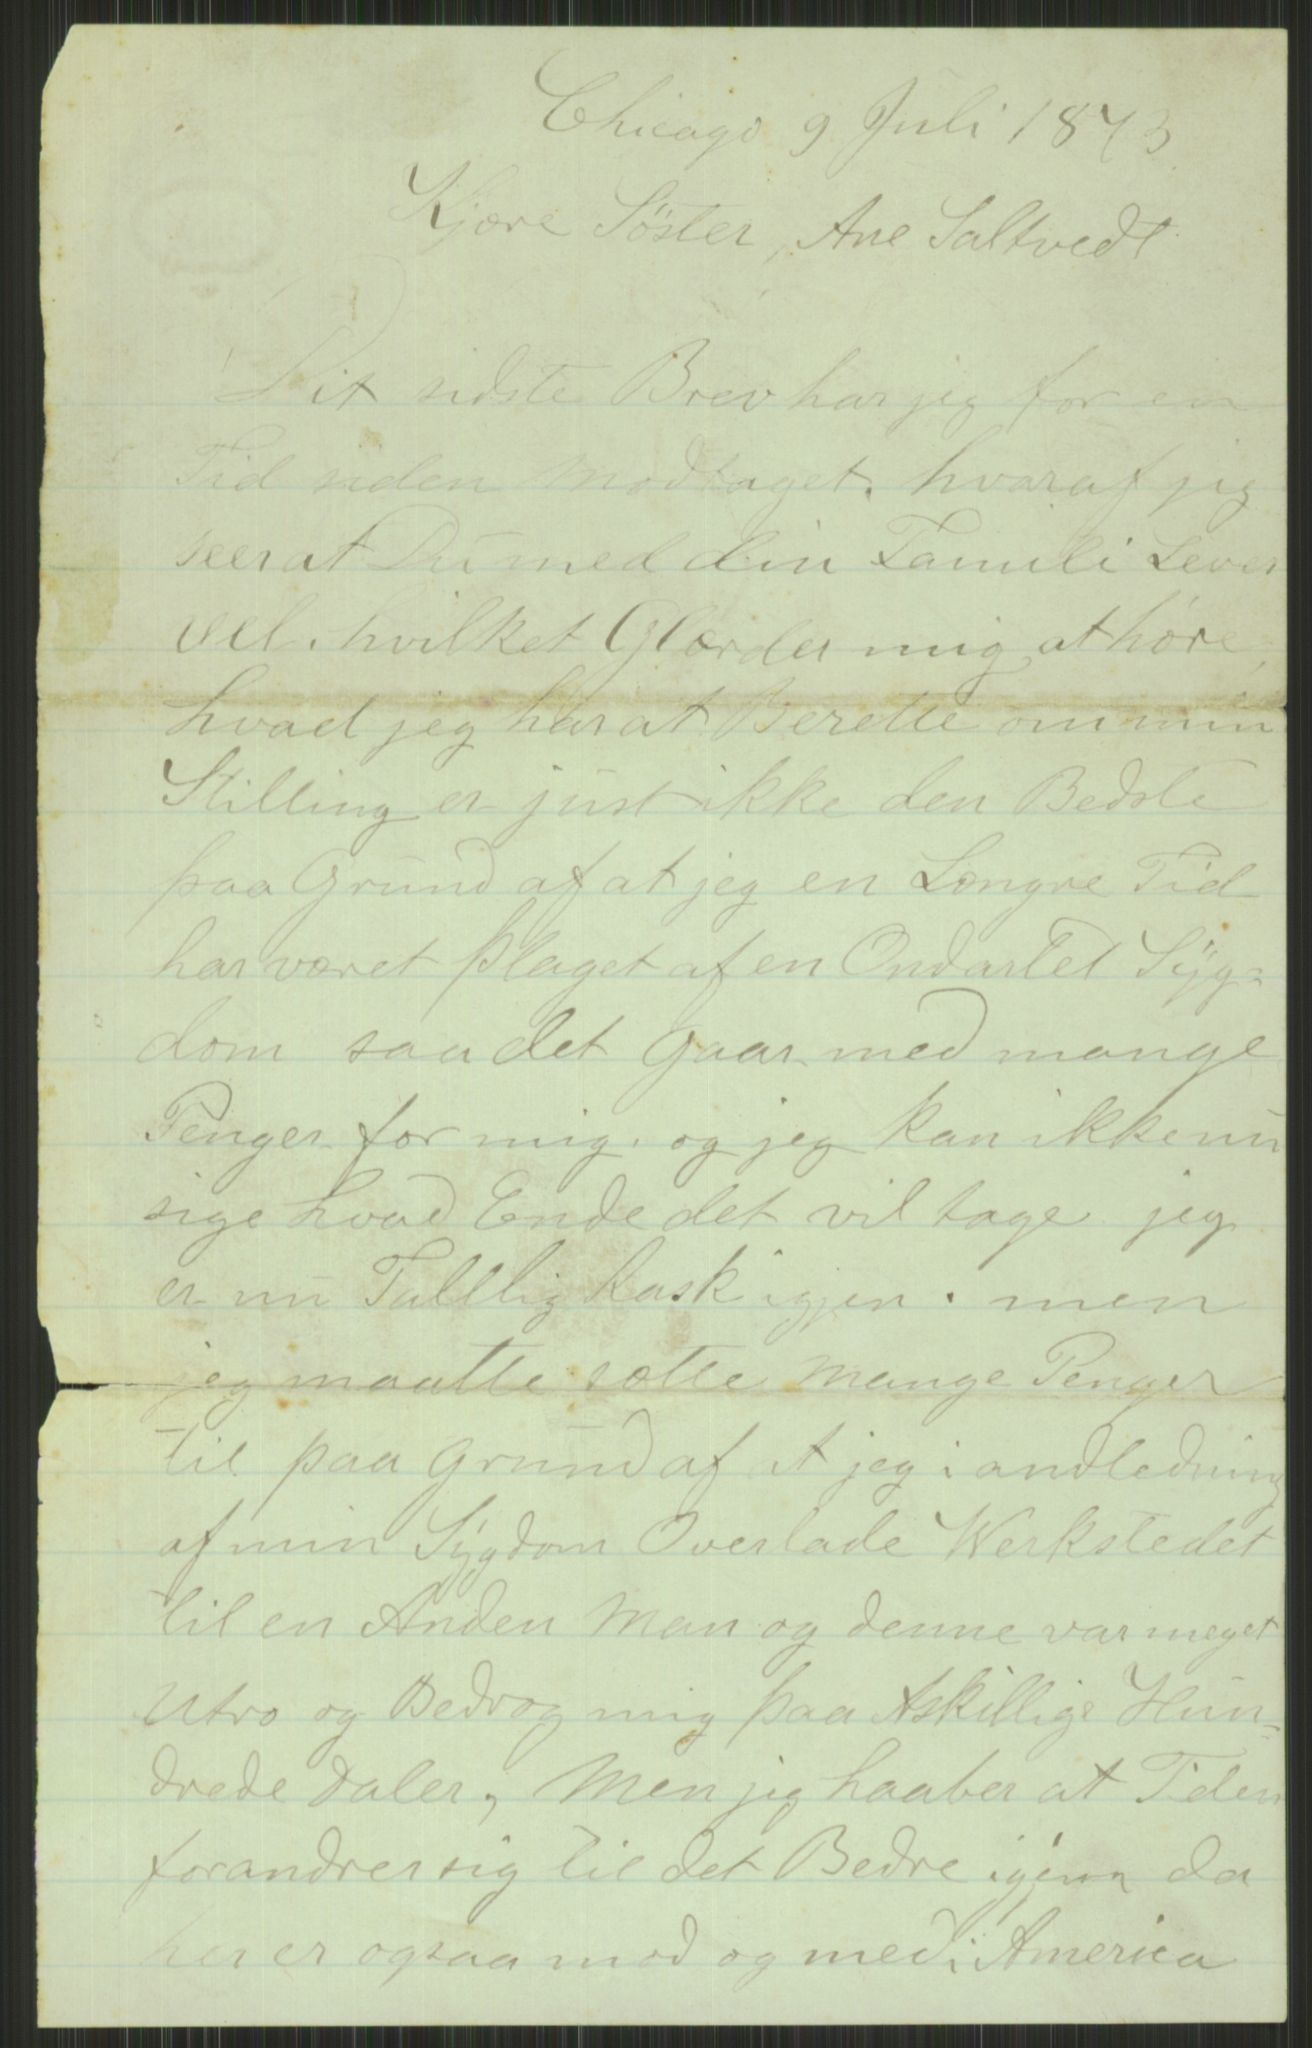 Chicago 9 Juli 1873
Kjære Söster, Ane Saltvedt
Dit sidste Brev har jeg for en
Tid siden modtaget. hvoraf jeg
seer at Du med din Famili Lever
vel. hvilket Glæder mig at höre,
hvad jeg har at Berette om min
Stilling er just ikke den Bedste
paa Grund af at jeg en Længre Tid
har været plaget af en Ondartet Syg=
dom saa det gaar med mange
Penger for mig. og jeg kan ikke nu
sige hvad Ende det vil tage jeg
er nu Tallig Rask igjen. men
jeg maatte sætte mange Penger
til paa Grund af at jeg i andledning
af min Sygdom Overlade Werkstedet
til en Anden Man og denne var meget
Utro og Bedrog mig paa Askillige Hun=
drede Daler, Men jeg haaber at Tiden
forandrer sig til det Bedre igjenn da
her er ogsaa mod og med i America